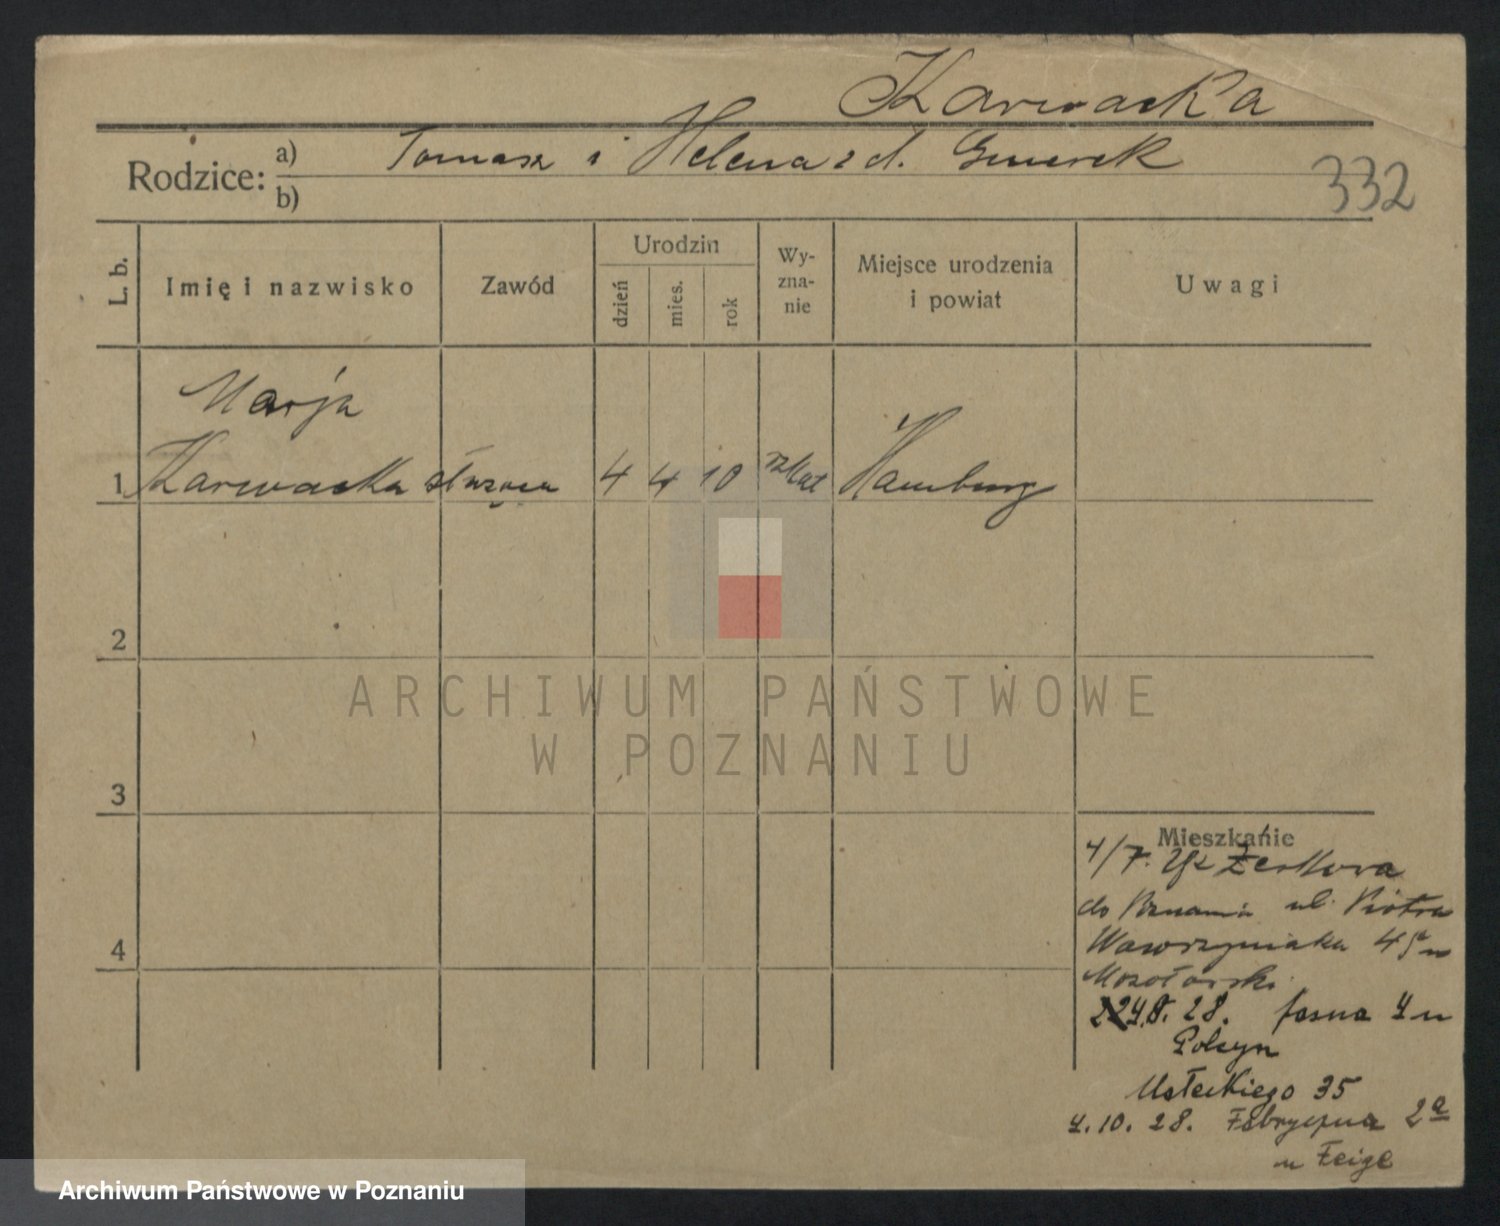 Karwacka
Rodzice: a) Tomasz i Helena z d.
b)
332
L. b.
Imię i nazwisko
Zawód
Urodzin
dzień
mies.
rok
Wy-
zna-
nie
Miejsce urodzenia
i powiat
Uwagi
Marja
1 Karwacka służąca 4 4 10 rzkat Hamburg
2
3
4
ARCHIWUM PAŃSTWOWE
W POZNANIU
Mieszkanie
4/7. Żerkowa
do Poznania ul. Piotra
Wawrzyniaka 45 u
8. 28. Jasna 4 u
Małeckiego 35
4. 10. 28. Fabryczna 2a
u Feige
Archiwum Państwowe w Poznaniu